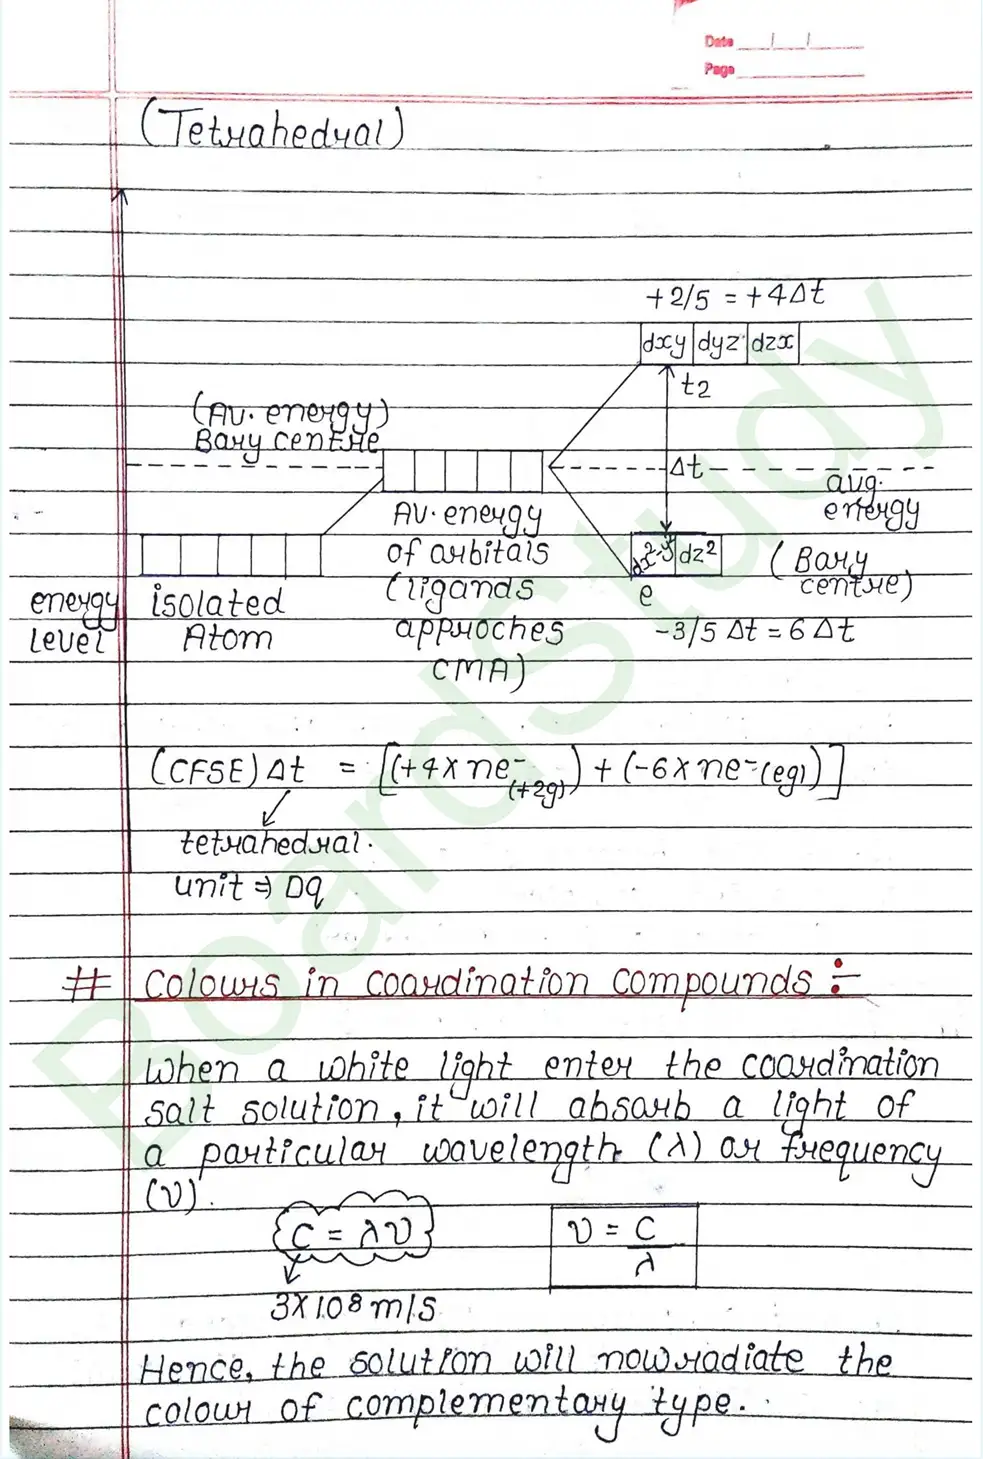 Date
Page
(Tetrahedral)
+2/5 = +4Δt
dxy dyz dzx
t2
(AV. energy)
Bary centre
Δt
avg.
energy
AV. energy
of orbitals
(ligands
approches
CMA)
dx²-y² dz²
e
(Bary
centre)
-3/5 Δt = 6 Δt
energy
level
isolated
Atom
(CFSE) Δt = [(+4 X ne⁻(+2g)) + (-6 X ne⁻(eg))]
tetrahedral.
unit ⇒ Dq
# Colours in coordination compounds :-
When a white light enter the coordination
salt solution, it will absorb a light of
a particular wavelength (λ) or frequency
(ν).
C = λν
ν = C/λ
3X108 m/s
Hence, the solution will now radiate the
colour of complementary type.
BoardStudy